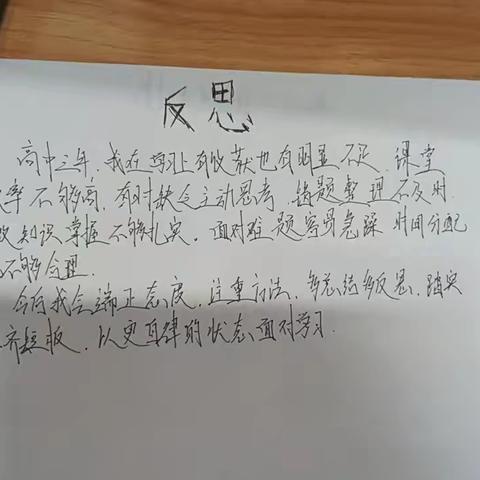 反思
高中三年，我在学习上有收获也有明显不足，课堂
率不够高，有时缺乏主动思考，错题整理不及时，
知识掌握不够扎实，面对难题容易急躁，时间分配
不够合理。
今后我会端正态度，注重方法，多总结多反思，踏实
齐短板，以更自律的状态面对学习.